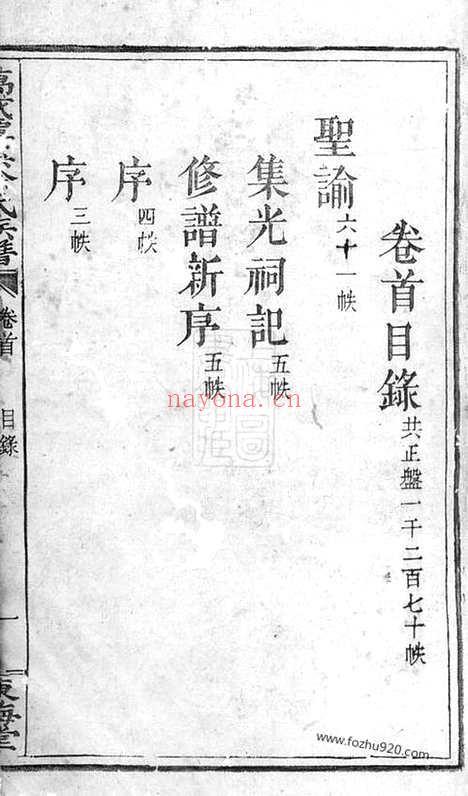 卷首目錄 共正盤一千二百七十帙
聖諭 六十一帙
集光祠記 五帙
修譜新序 五帙
序 四帙
序 三帙
卷首
目錄
一
東海堂
nayona.cn
www.fozhu920.com